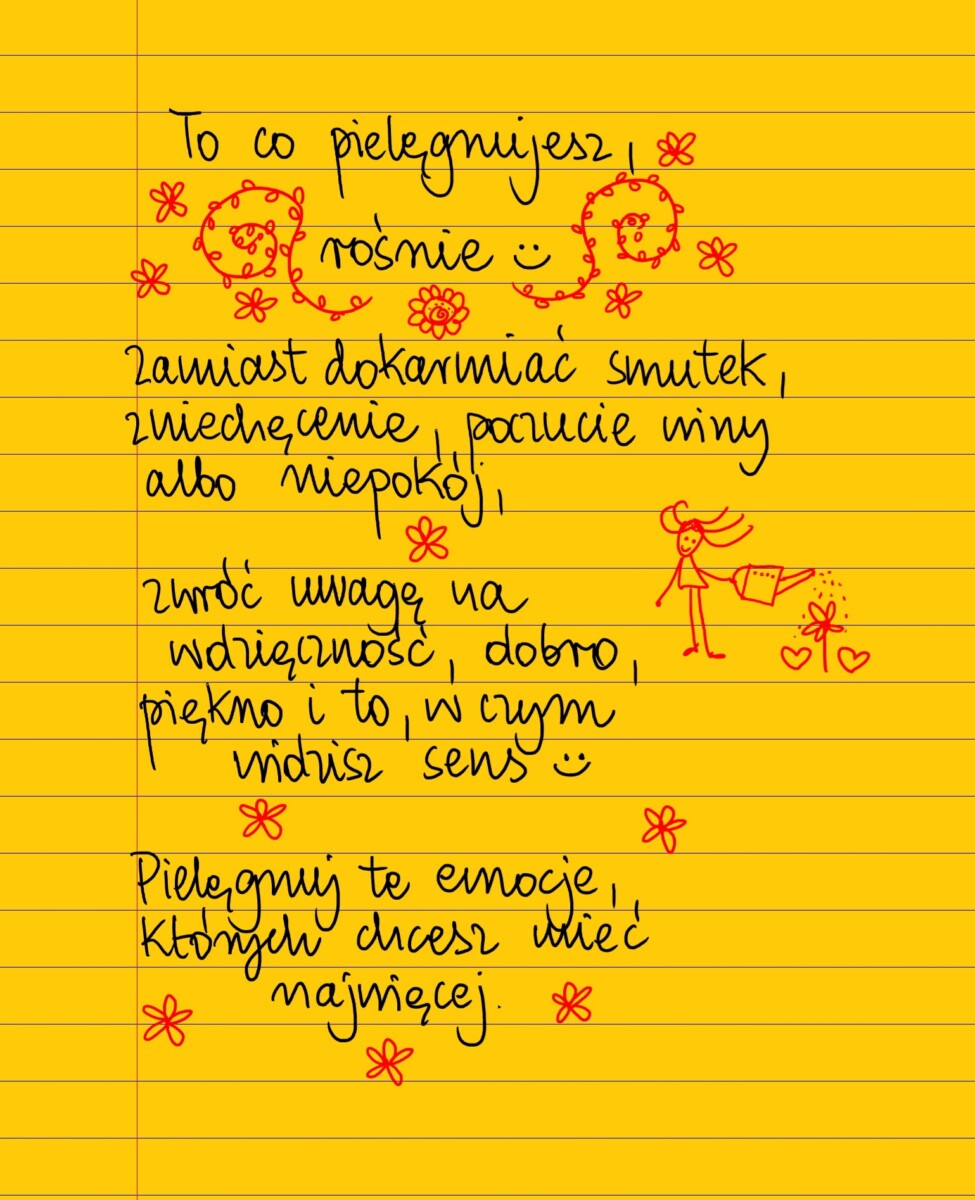 To co pielęgnujesz,
rośnie :)
Zamiast dokarmiać smutek,
zniechęcenie, poczucie winy
albo niepokój,
zwróć uwagę na
wdzięczność, dobro,
piękno i to, w czym
widzisz sens :)
Pielęgnuj te emocje,
których chcesz mieć
najwięcej.